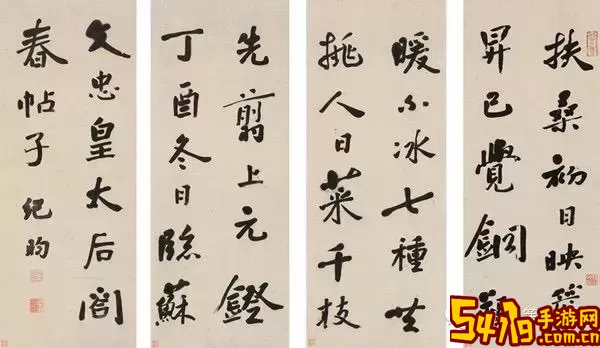 扶桑初日映
昇已覺銅
暖不冰七種共
挑人日菜千枝
先剪上元鐙
丁酉冬日臨蘇
文忠皇太后閣
春帖子 紀昀
手游网